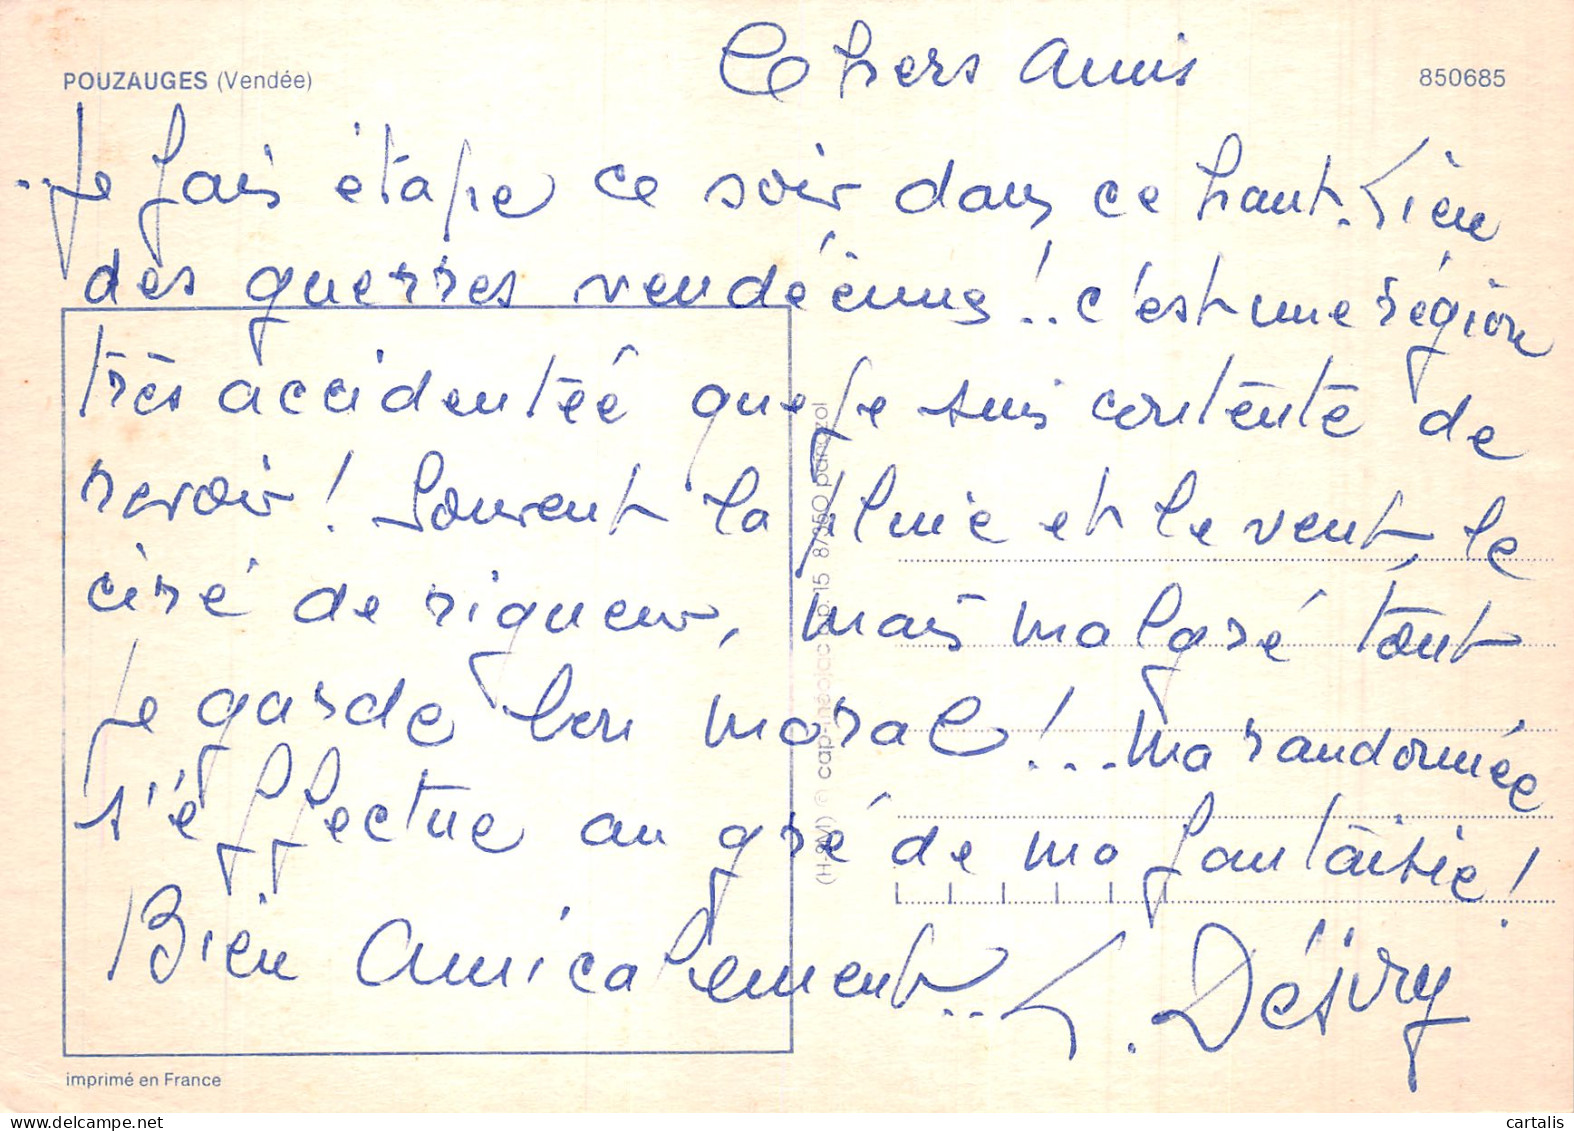 POUZAUGES (Vendée)
850685
Chers Amis
..Je fais étape ce soir dans ce haut-Lieu
des guerres vendéennes !.. c'est une région
très accidentée que je suis contente de
revoir ! Souvent la pluie et le vent, le
ciré de rigueur, mais malgré tout
je garde bon moral !... ma randonnée
s'effectue au gré de ma fantaisie !
Bien Amicalement..
imprimé en France
cartalis